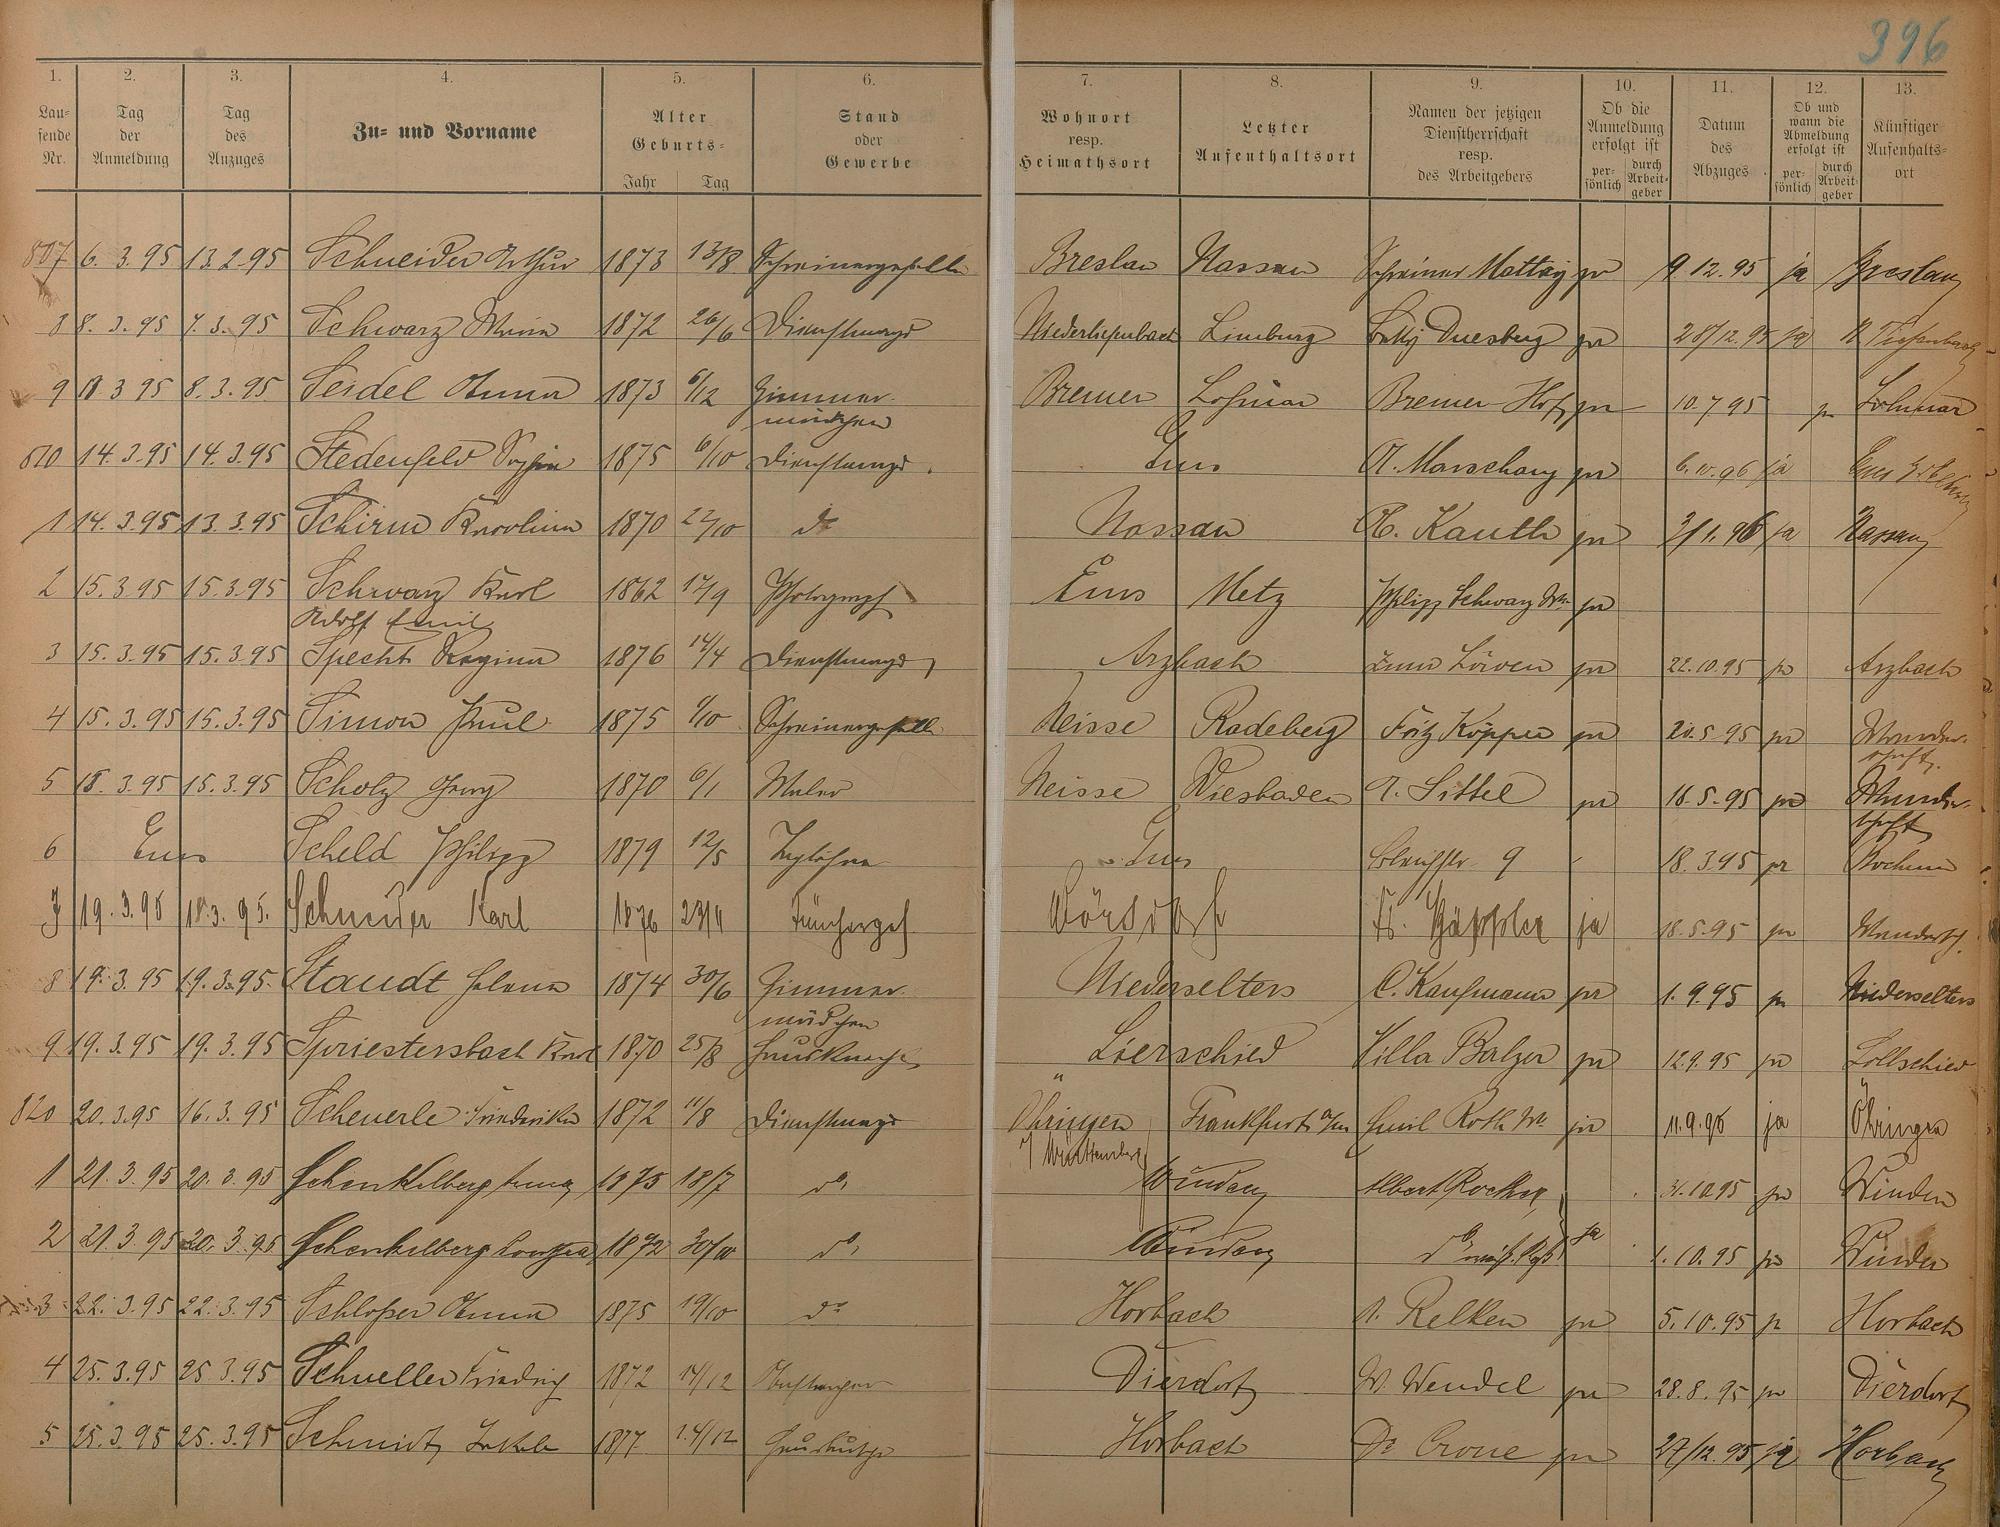 396
1. 2. 3. 4. 5. 6. 7. 8. 9. 10. 11. 12. 13.
Laufende Nr. Tag der Anmeldung Tag des Anzuges Zu- und Vorname Alter Geburts- Jahr Tag Stand oder Gewerbe Wohnort resp. Heimathsort Letzter Aufenthaltsort Namen der jetzigen Dienstherrschaft resp. des Arbeitgebers Ob die Anmeldung erfolgt ist persönlich durch Arbeitgeber Datum des Abzuges Ob und wann die Abmeldung erfolgt ist persönlich durch Arbeitgeber Künftiger Aufenthaltsort
807 6. 3. 95 13. 2. 95 Schneider Arthur 1873 13/8 Schreinergeselle Breslau Nassau Schreiner Mattey 9. 12. 95 ja Breslau
8 8. 3. 95 7. 3. 95 Schwarz Maria 1872 26/6 Dienstmagd Niedertiefenbach Limburg Duesberg 28/12. 95 ja N. Tiefenbach
9 11 3 95 8. 3. 95 Seidel Anna 1873 6/12 Zimmer- Bremen Bremer Hof 10. 7 95
mädchen
810 14. 3. 95 14. 3. 95 Stedenfeld Sophie 1875 6/10 Dienstmagd Ems A. Marschang ja Ems
1 14. 3. 95 13. 3. 95 Schirm Karolina 1870 22/10 do Nassau A. Kauth 3/1. 96 ja Nassau
2 15. 3. 95 15. 3. 95 Schwarz Karl 1862 17/9 Photograph Ems Metz Philipp Schwarz Ww.
Adolf Emil
3 15. 3. 95 15. 3. 95 Specht Regina 1876 14/4 Dienstmagd Arzbach zum Löwen 22. 10. 95 Arzbach
4 15. 3. 95 15. 3. 95 Simon Paul 1875 1/10 Schreinergeselle Neisse Radeberg Fritz Köpper 20. 5 95 Wander-
schaft
5 18. 3. 95 15. 3. 95 Scholz Georg 1870 6/1 Maler Neisse Wiesbaden A. Sittel 16. 5. 95 Wander-
schaft
6 Ems Scheld Philipp 1879 12/5 Taglöhner Ems 9 18. 3. 95 Bochum
7 19. 3. 95 18. 3. 95. Schneider Karl 1876 23/4 Tünchergef Wörsdorf ja 18. 5. 95 Wandersch.
8 19. 3. 95 19. 3. 95. Staudt Helena 1874 30/6 Zimmer Niederselters C. Kaufmann 1. 9. 95 Niederselters
mädchen
9 19. 3. 95 19. 3. 95 Spriestersbach Karl 1870 25/8 Hausknecht Villa Balzer 12. 9. 95 Lollschied
820 20. 3. 95 16. 3. 95 Scheuerle Friederike 1872 11/8 Dienstmagd Öhringen Frankfurt a/m Emil Roth Ww. 11. 9. 96 ja Öhringen
i/ Württemberg
1 21. 3. 95 20. 3. 95 Schenkelberg Anna 1875 18/7 do Winden Albert Rocker 31. 10 95 Winden
2 21. 3 95 20. 3. 95 Schenkelberg 1872 30/10 do Winden do ja 1. 10. 95 Winden
3 22. 3. 95 22. 3. 95 Schloßer Anna 1875 19/10 do Horbach A. Relken 5. 10. 95 Horbach
4 25. 3. 95 25. 3. 95 Schneller Friedrich 1872 14/12 Dierdorf W. Wendel 28. 8. 95 Dierdorf
5 25. 3. 95 25. 3. 95 Schmidt Jakob 1877 14/12 Horbach Dr Crone 27/12. 95 ja Horbach